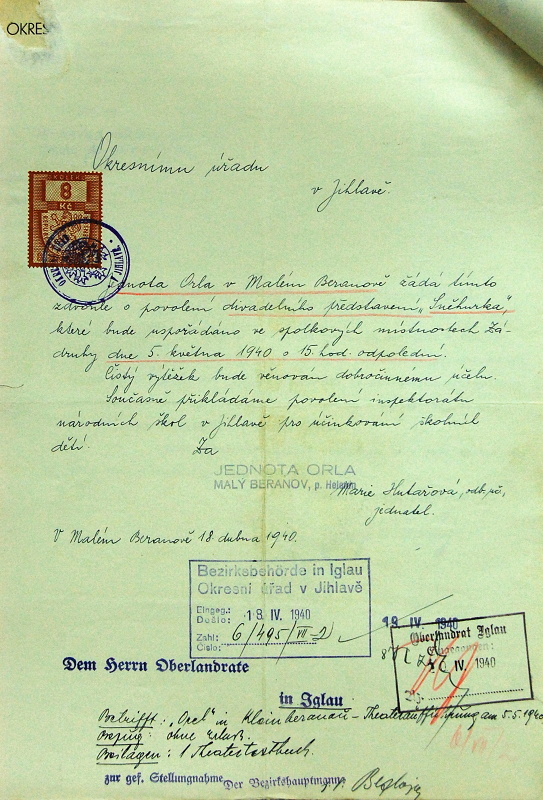 OKRES
Okresnímu úřadu
v Jihlavě.
KOLEK
8
Kč
Jednota Orla v Malém Beranově žádá tímto
zdvořile o povolení divadelního představení „Sněhurka",
které bude uspořádáno ve spolkových místnostech Zá-
druhy dne 5. května 1940 o 15. hod. odpolední.
Čistý výtěžek bude věnován dobročinnému účelu.
Současně přikládáme povolení inspektorátu
národních škol v Jihlavě pro účinkování školních
dětí.
Za
JEDNOTA ORLA
MALÝ BERANOV, p. Helenín
Marie Hutařová,
jednatel.
V Malém Beranově 18 dubna 1940.
Bezirksbehörde in Iglau
Okresní úřad v Jihlavě
Eingeg.:
Došlo: 18. IV. 1940
Zahl:
Číslo: 6/495/VII-2
18. IV. 1940
Oberlandrat Iglau
Eingegangen:
IV. 1940
Dem Herrn Oberlandrate
in Iglau
Betrifft: „Orel" in Kleinberanau - Theateraufführung am 5.5.1940
Bezug: ohne Erlaß.
Beilagen: 1 Theatertextbuch.
zur gef. Stellungnahme Der Bezirkshauptmann